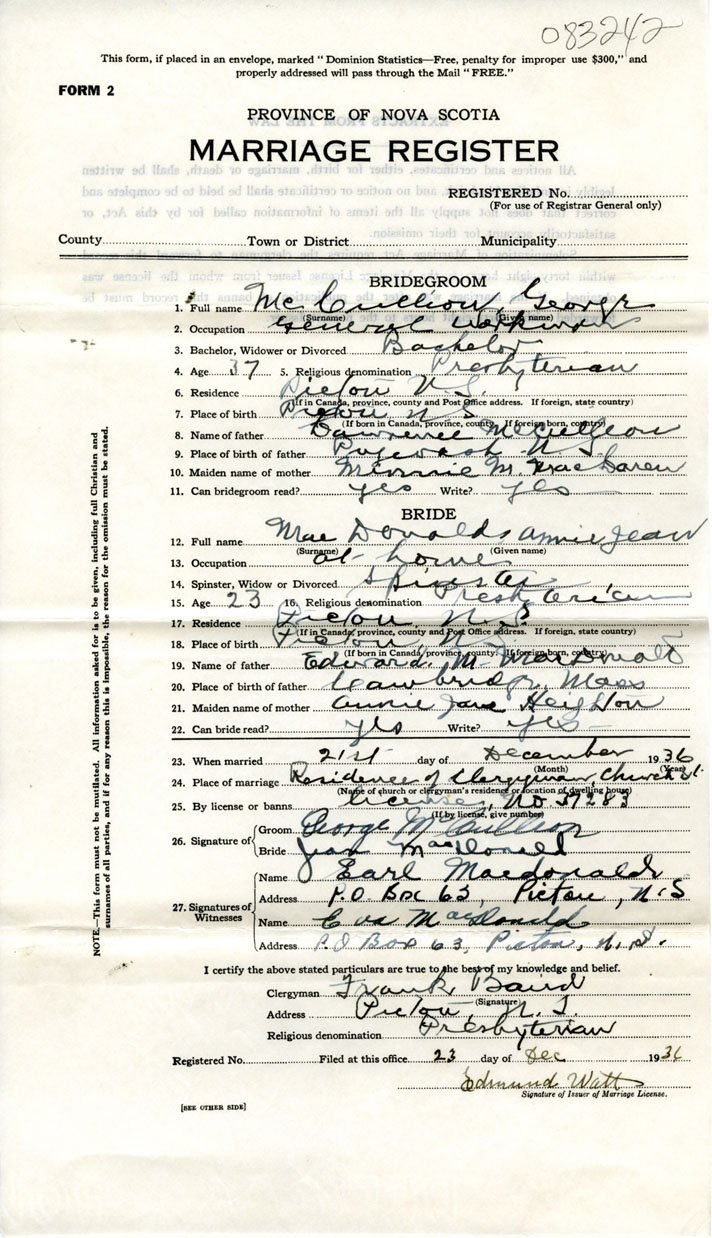 083242
This form, if placed in an envelope, marked "Dominion Statistics—Free, penalty for improper use $300," and
properly addressed will pass through the Mail "FREE."
FORM 2
PROVINCE OF NOVA SCOTIA
MARRIAGE REGISTER
REGISTERED No.
(For use of Registrar General only)
County Town or District Municipality
BRIDEGROOM
1. Full name McCullion, George
(Surname) (Given name)
2. Occupation General Workman
3. Bachelor, Widower or Divorced Bachelor
4. Age 37 5. Religious denomination Presbyterian
6. Residence Pictou N.S.
(If in Canada, province, county and Post Office address. If foreign, state country)
7. Place of birth Pictou N S
(If born in Canada, province, county. If foreign born, country)
8. Name of father Lawrence McCullion
9. Place of birth of father Pugwash N.S.
10. Maiden name of mother Minnie M. MacLaren
11. Can bridegroom read? yes Write? yes
BRIDE
12. Full name MacDonald, Annie Jean
(Surname) (Given name)
13. Occupation at home
14. Spinster, Widow or Divorced Spinster
15. Age 23 16. Religious denomination Presbyterian
17. Residence Pictou N.S
(If in Canada, province, county and Post Office address. If foreign, state country)
18. Place of birth Pictou, N.S
(If born in Canada, province, county. If foreign born, country)
19. Name of father Edward M. MacDonald
20. Place of birth of father Mass
21. Maiden name of mother Annie Jane Heighton
22. Can bride read? yes Write? yes
23. When married 21st day of December 1936
(Month) (Year)
24. Place of marriage Residence of Clergyman, Church St.
(Name of church or clergyman's residence or location of dwelling house)
25. By license or banns License, No 37283
(If by license, give number)
26. Signature of Groom George McCullion
Bride Jean MacDonald
27. Signatures of Witnesses
Name Earl Macdonald
Address P.O. Box 63, Pictou, N.S
Name Eva MacDonald
Address P.O Box 63, Pictou, N.S.
I certify the above stated particulars are true to the best of my knowledge and belief.
Clergyman Frank Baird
(Signature)
Address Pictou, N.S.
Religious denomination Presbyterian
Registered No. Filed at this office 23 day of Dec 1936
Edmund Watt
Signature of Issuer of Marriage License.
[SEE OTHER SIDE]
NOTE.—This form must not be mutilated. All information asked for is to be given, including full Christian and
surnames of all parties, and if for any reason this is impossible, the reason for the omission must be stated.